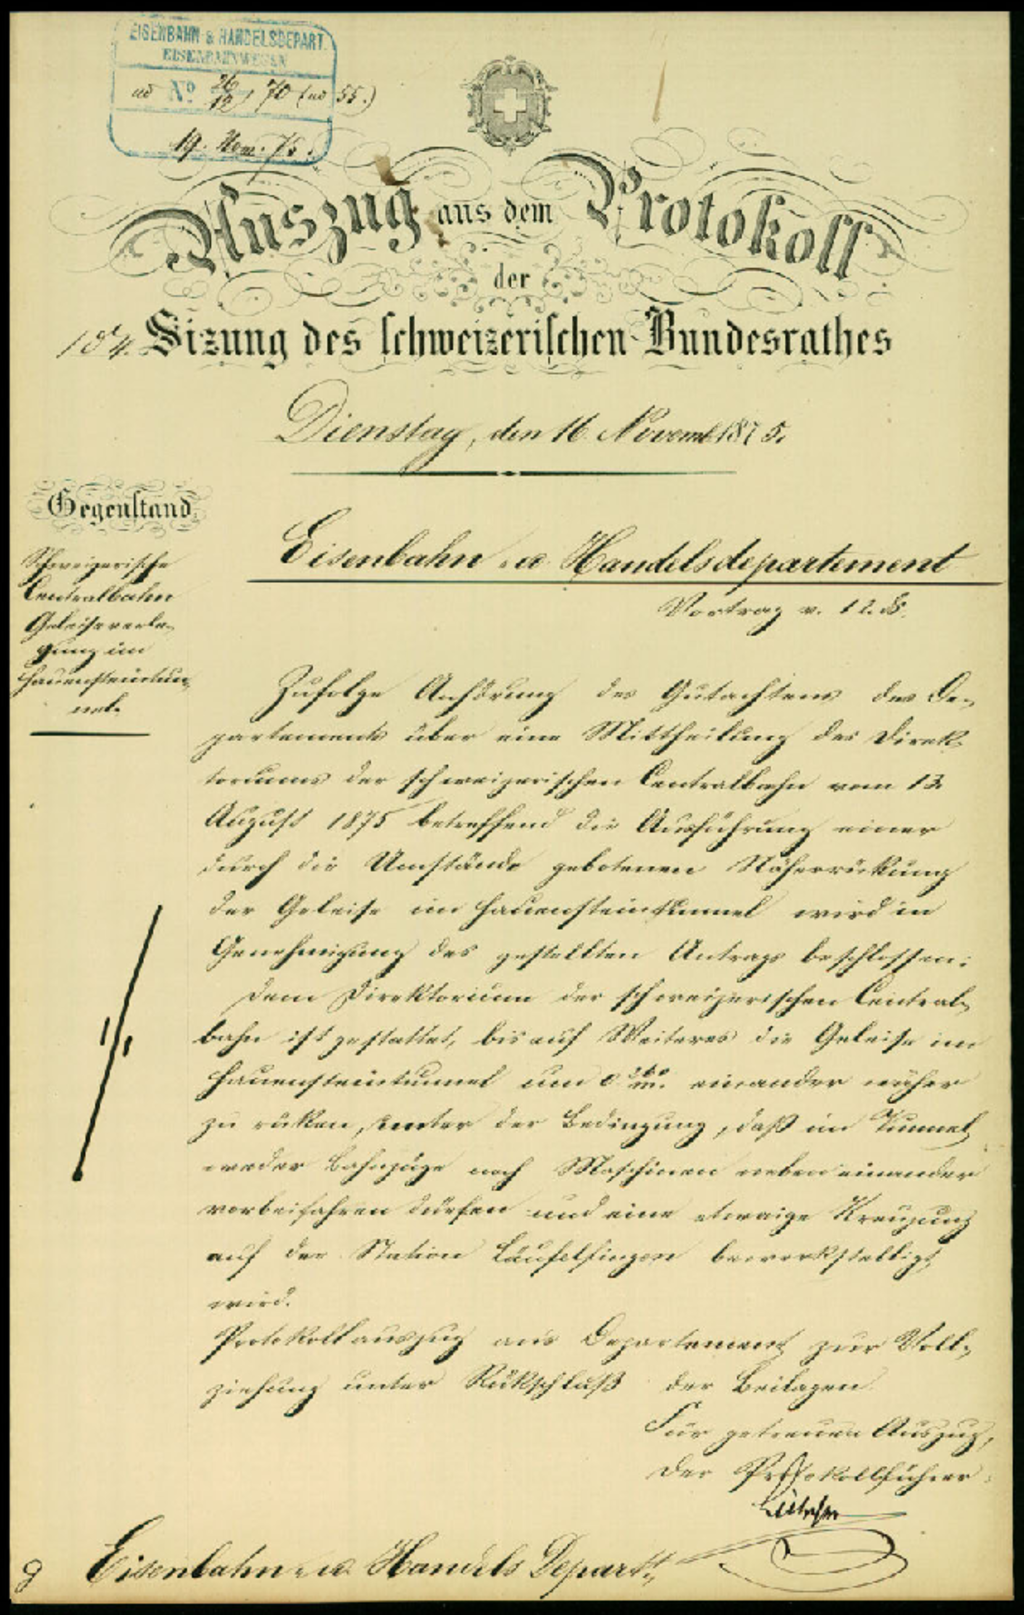 EISENBAHN & HANDELSDEPART.
EISENBAHNWESEN
ad No 26/12, 70 (ad 55.)
19. Nov. 75.
Auszug aus dem Protokoll
der
154. Sizung des schweizerischen Bundesrathes
Dienstag, den 16. Novemb. 1875.
Gegenstand
Schweizerische
Centralbahn
Geleiseverle-
gung im
Hauensteintun-
nel.
Eisenbahn- u. Handelsdepartement
Vortrag v. 12. ds.
Zufolge Anhörung des Gutachtens des De-
partements über eine Mittheilung des Direk-
toriums der schweizerischen Centralbahn vom 13.
August 1875 betreffend die Ausführung einer
durch die Umstände gebotenen Näherrükung
der Geleise im Hauensteintunnel wird in
Genehmigung des gestellten Antrags beschlossen:
Dem Direktorium der schweizerischen Central-
bahn ist gestattet, bis auf Weiteres die Geleise im
Hauensteintunnel um einander näher
zu rüken, unter der Bedingung, daß im Tunnel
weder Bahnzüge noch Maschinen neben einander
vorbeifahren dürfen und eine etwaige Kreuzung
auf der Station Läufelfingen bewerkstelligt
wird.
Protokollauszug ans Departement zur Voll-
ziehung unter Rükschluß der Beilagen.
Für getreuen Auszug,
Der Protokollführer:
Eisenbahn- u. Handels Departt.